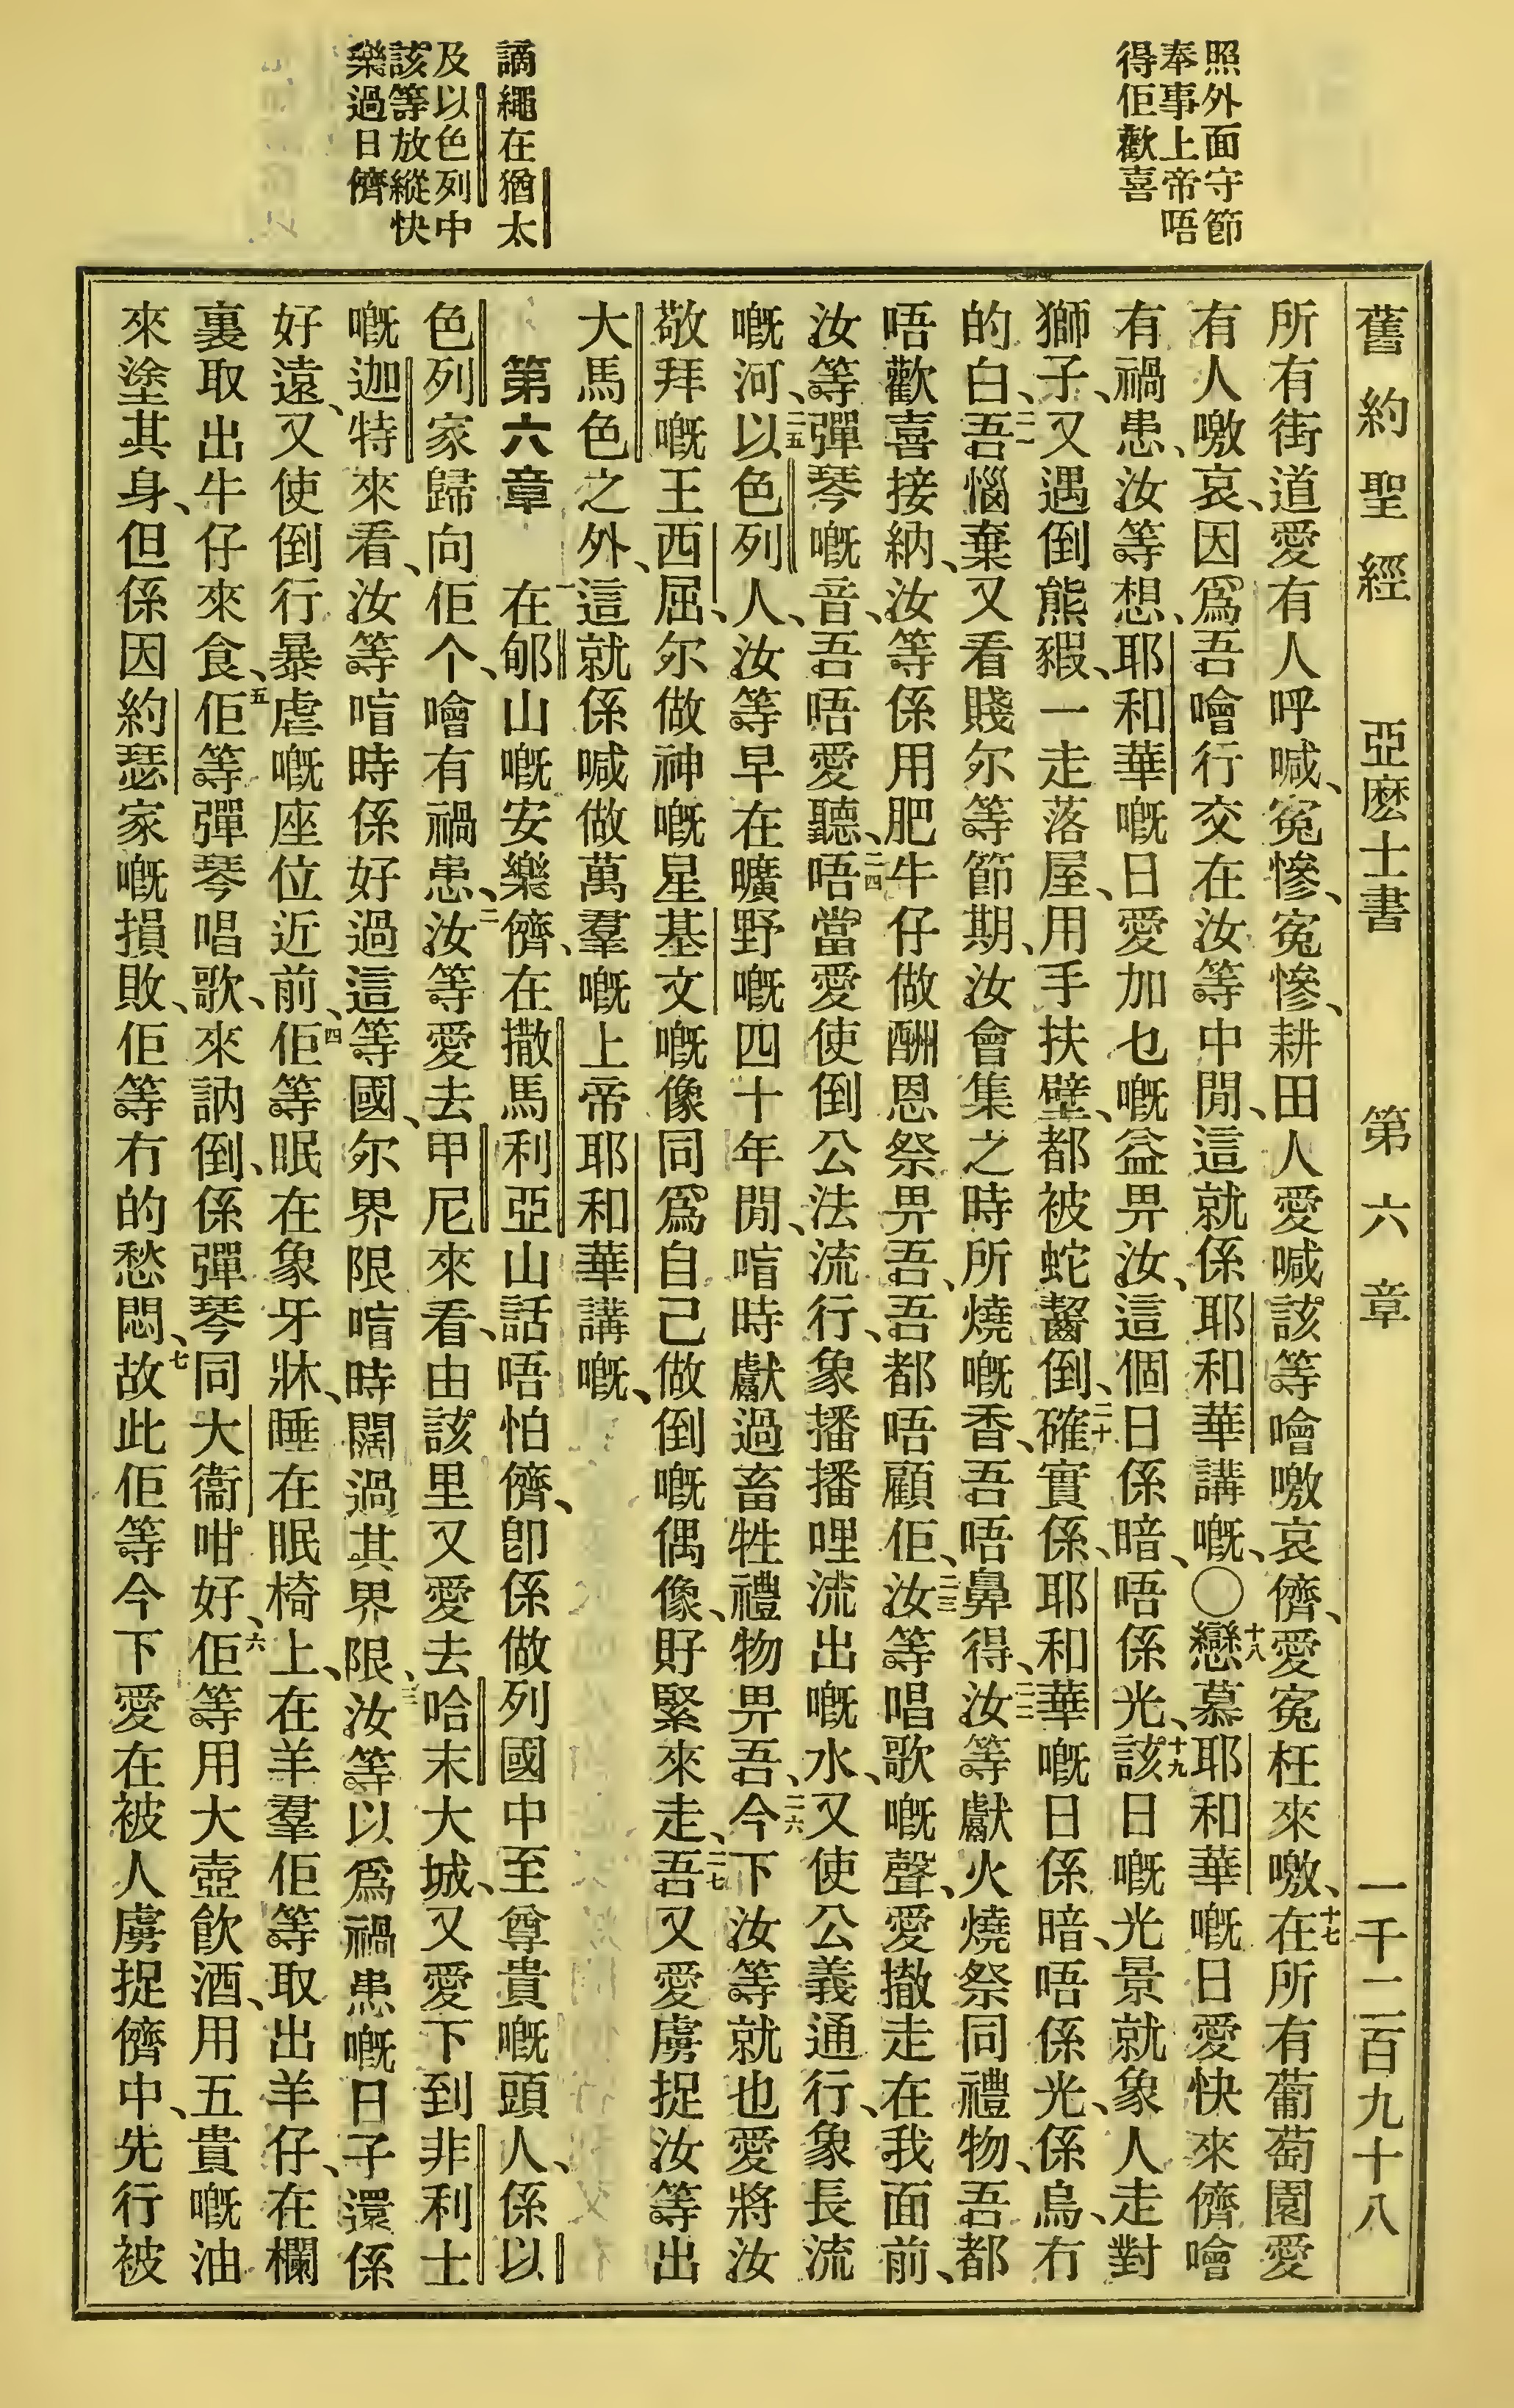 照外面守節
奉事上帝唔
得佢歡喜
謫繩在猶太
及以色列中
該等放縱快
樂過日儕
舊約聖經 亞麽士書 第六章 一千二百九十八
所有街道愛有人呼喊、寃慘、寃慘、耕田人愛喊該等噲噭哀儕、愛寃枉來噭、十七在所有葡萄園愛
有人噭哀、因爲吾噲行交在汝等中閒、這就係耶和華講嘅、〇十八戀慕耶和華嘅日愛快來儕噲
有禍患、汝等想、耶和華嘅日愛加乜嘅益畀汝、這個日係暗、唔係光、十九該日嘅光景就象人走對
獅子、又遇倒熊豭、一走落屋、用手扶壁、都被蛇齧倒、二十確實係、耶和華嘅日係暗、唔係光、係烏、冇
的白、二一吾惱棄又看賤尔等節期、汝會集之時所燒嘅香、吾唔鼻得、二二汝等獻火燒祭同禮物、吾都
唔歡喜接納、汝等係用肥牛仔做酬恩祭畀吾、吾都唔顧佢、二三汝等唱歌嘅聲、愛撤走在我面前、
汝等彈琴嘅音、吾唔愛聽、二四唔當愛使倒公法流行、象播播哩流出嘅水、又使公義通行、象長流
嘅河、二五以色列人、汝等早在曠野嘅四十年閒、喑時獻過畜牲禮物畀吾、二六今下汝等就也愛將汝
敬拜嘅王西屈、尔做神嘅星基文嘅像同爲自己做倒嘅偶像、㝀緊來走、二七吾又愛虜捉汝等出
大馬色之外、這就係喊做萬羣嘅上帝耶和華講嘅、
第六章 一在郇山嘅安樂儕、在撒馬利亞山話唔怕儕、卽係做列國中至尊貴嘅頭人、係以
色列家歸向佢个、噲有禍患、二汝等愛去甲尼來看、由該里又愛去哈末大城、又愛下到非利士
嘅迦特來看、汝等喑時係好過這等國、尔界限喑時闊過其界限、三汝等以爲禍患嘅日子還係
好遠、又使倒行暴虐嘅座位近前、四佢等眠在象牙牀、睡在眠椅上、在羊羣佢等取出羊仔、在欄
裏取出牛仔來食、五佢等彈琴唱歌、來訥倒、係彈琴同大衞咁好、六佢等用大壺飮酒、用五貴嘅油
來塗其身、但係因約瑟家嘅損敗、佢等冇的愁悶、七故此佢等今下愛在被人虜捉儕中、先行被